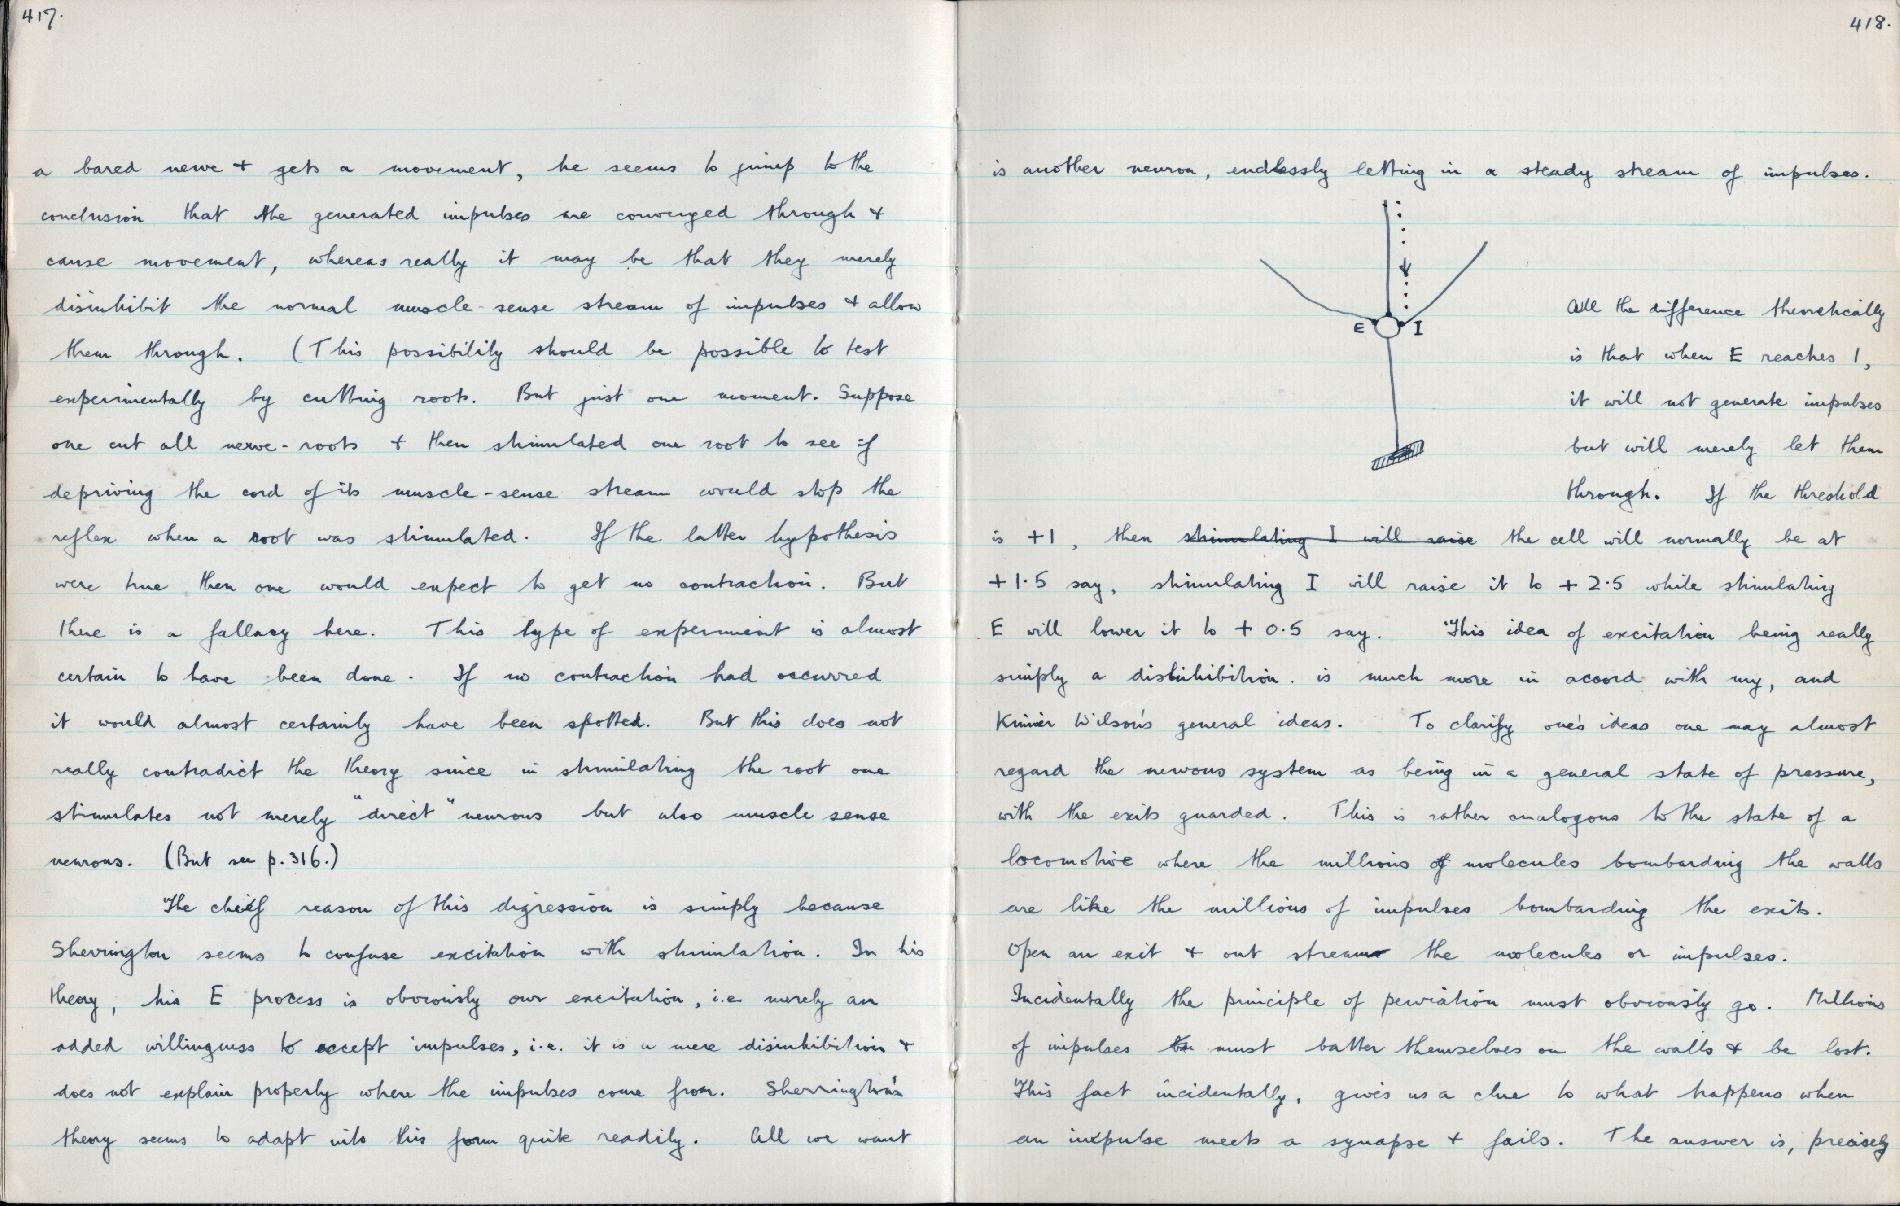 417.
a bared nerve + gets a movement, he seems to jump to the
conclusion that the generated impulses are converged through +
cause movement, whereas really it may be that they merely
disinhibit the normal muscle-sense stream of impulses + allow
them through. (This possibility should be possible to test
experimentally by cutting roots. But just one moment. Suppose
one cut all nerve-roots + then stimulated one root to see if
depriving the cord of its muscle-sense stream would stop the
reflex when a root was stimulated. If the latter hypothesis
were true then one would expect to get no contraction. But
there is a fallacy here. This type of experiment is almost
certain to have been done. If no contraction had occurred
it would almost certainly have been spotted. But this does not
really contradict the theory since in stimulating the root one
stimulates not merely "direct" neurons but also muscle sense
neurons. (But see p.316.)
The chief reason of this digression is simply because
Sherrington seems to confuse excitation with stimulation. In his
theory, his E process is obviously our excitation, i.e. merely an
added willingness to accept impulses, i.e. it is a mere disinhibition +
does not explain properly where the impulses come from. Sherrington's
theory seems to adapt into this form quite readily. All we want
418.
is another neuron, endlessly letting in a steady stream of impulses.
E I
All the difference theoretically
is that when E reaches 1,
it will not generate impulses
but will merely let them
through. If the threshold
is +1, then stimulating I will raise the cell will normally be at
+1.5 say, stimulating I will raise it to +2.5 while stimulating
E will lower it to +0.5 say. This idea of excitation being really
simply a disinhibition. is much more in accord with my, and
Kinnier Wilson's general ideas. To clarify one's ideas one may almost
regard the nervous system as being in a general state of pressure,
with the exits guarded. This is rather analogous to the state of a
locomotive where the millions of molecules bombarding the walls
are like the millions of impulses bombarding the exits.
Open an exit + out stream the molecules or impulses.
Incidentally the principle of perviation must obviously go. Millions
of impulses must batter themselves on the walls + be lost.
This fact incidentally, gives us a clue to what happens when
an impulse meets a synapse + fails. The answer is, precisely